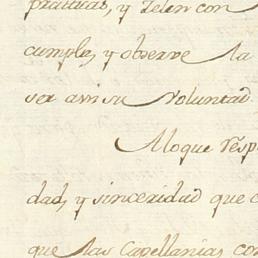 practicas, y zelen con
cumpla, y observe la
ser assi su Voluntad
Aloque resp
dad, y sinceridad que
que las Capellanias con